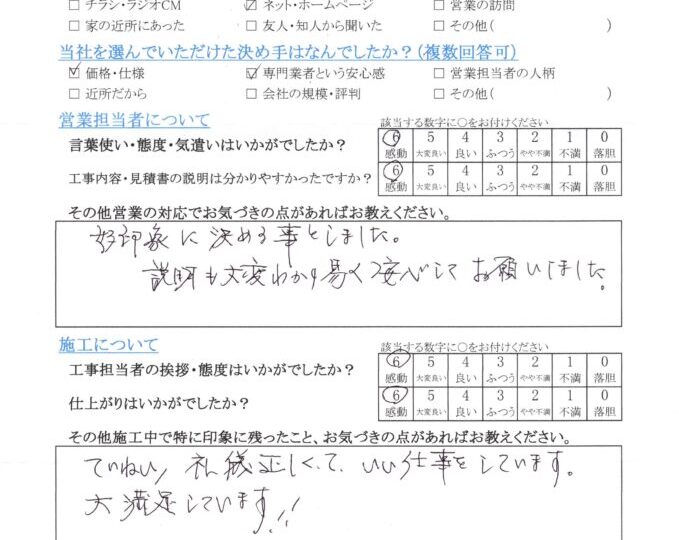 □ チラシ・ラジオCM ☑ ネット・ホームページ □ 営業の訪問
□ 家の近所にあった □ 友人・知人から聞いた □ その他( )
当社を選んでいただけた決め手はなんでしたか?(複数回答可)
☑ 価格・仕様 ☑ 専門業者という安心感 □ 営業担当者の人柄
□ 近所だから □ 会社の規模・評判 □ その他( )
営業担当者について
該当する数字に○をお付けください
言葉使い・態度・気遣いはいかがでしたか?
6 5 4 3 2 1 0
感動 大変良い 良い ふつう やや不満 不満 落胆
工事内容・見積書の説明は分かりやすかったですか?
6 5 4 3 2 1 0
感動 大変良い 良い ふつう やや不満 不満 落胆
その他営業の対応でお気づきの点があればお教えください。
好印象に決める事としました。
説明も大変わかり易く安心してお願いしました。
施工について
該当する数字に○をお付けください
工事担当者の挨拶・態度はいかがでしたか?
6 5 4 3 2 1 0
感動 大変良い 良い ふつう やや不満 不満 落胆
仕上がりはいかがでしたか?
6 5 4 3 2 1 0
感動 大変良い 良い ふつう やや不満 不満 落胆
その他施工中で特に印象に残ったこと、お気づきの点があればお教えください。
ていねい、礼儀正しくて、いい仕事をしています。
大満足しています!!